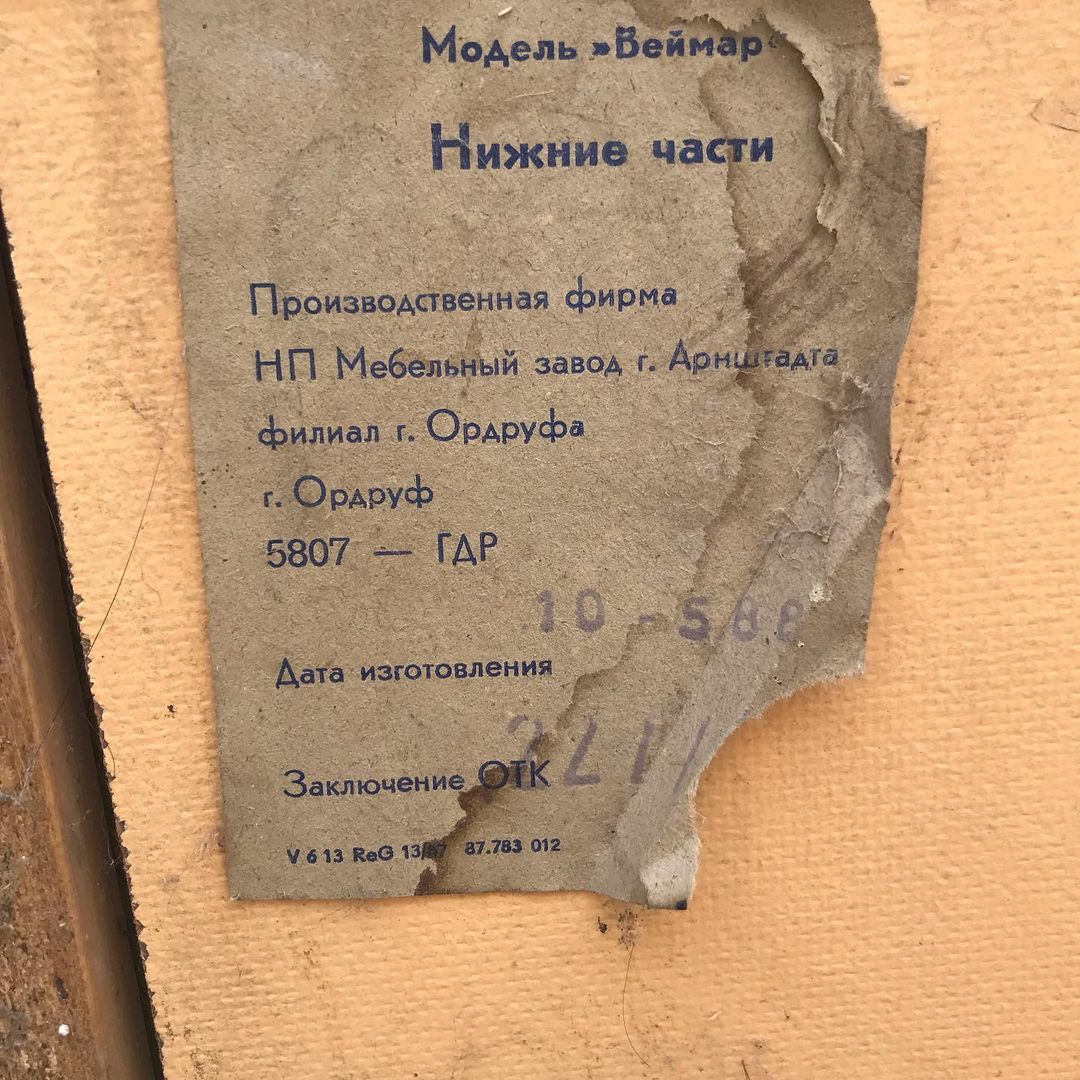 Модель »Веймар
Нижние части
Производственная фирма
НП Мебельный завод г. Арнштадта
филиал г. Ордруфа
г. Ордруф
5807 — ГДР
10 - 588
Дата изготовления
Заключение ОТК
V 6 13 ReG 13/87 87.783 012